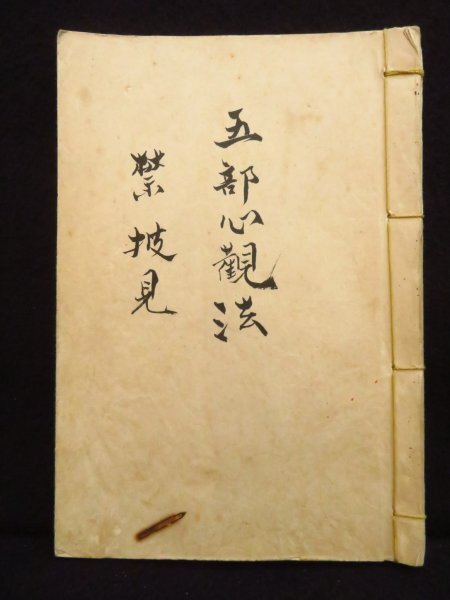 五部心觀法
禁披見